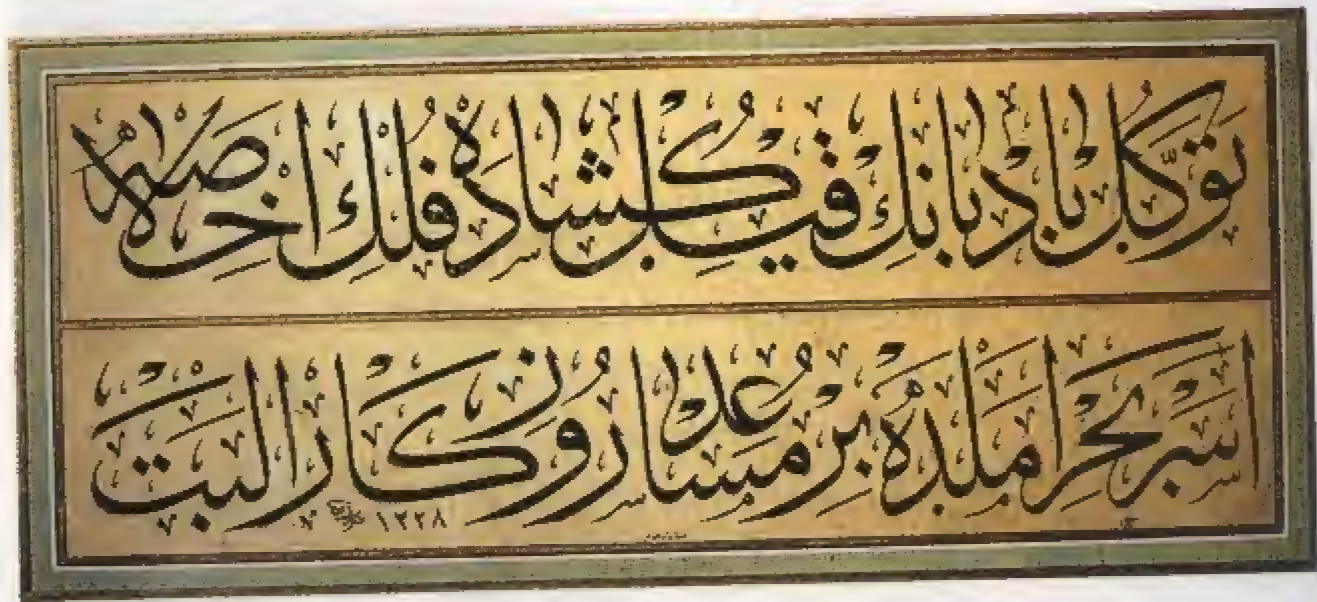 توكل بادبانك قيل كشاده فلك اخلاصله
اسر بحر املده بر مساعد روزكار البت
١٢٢٨